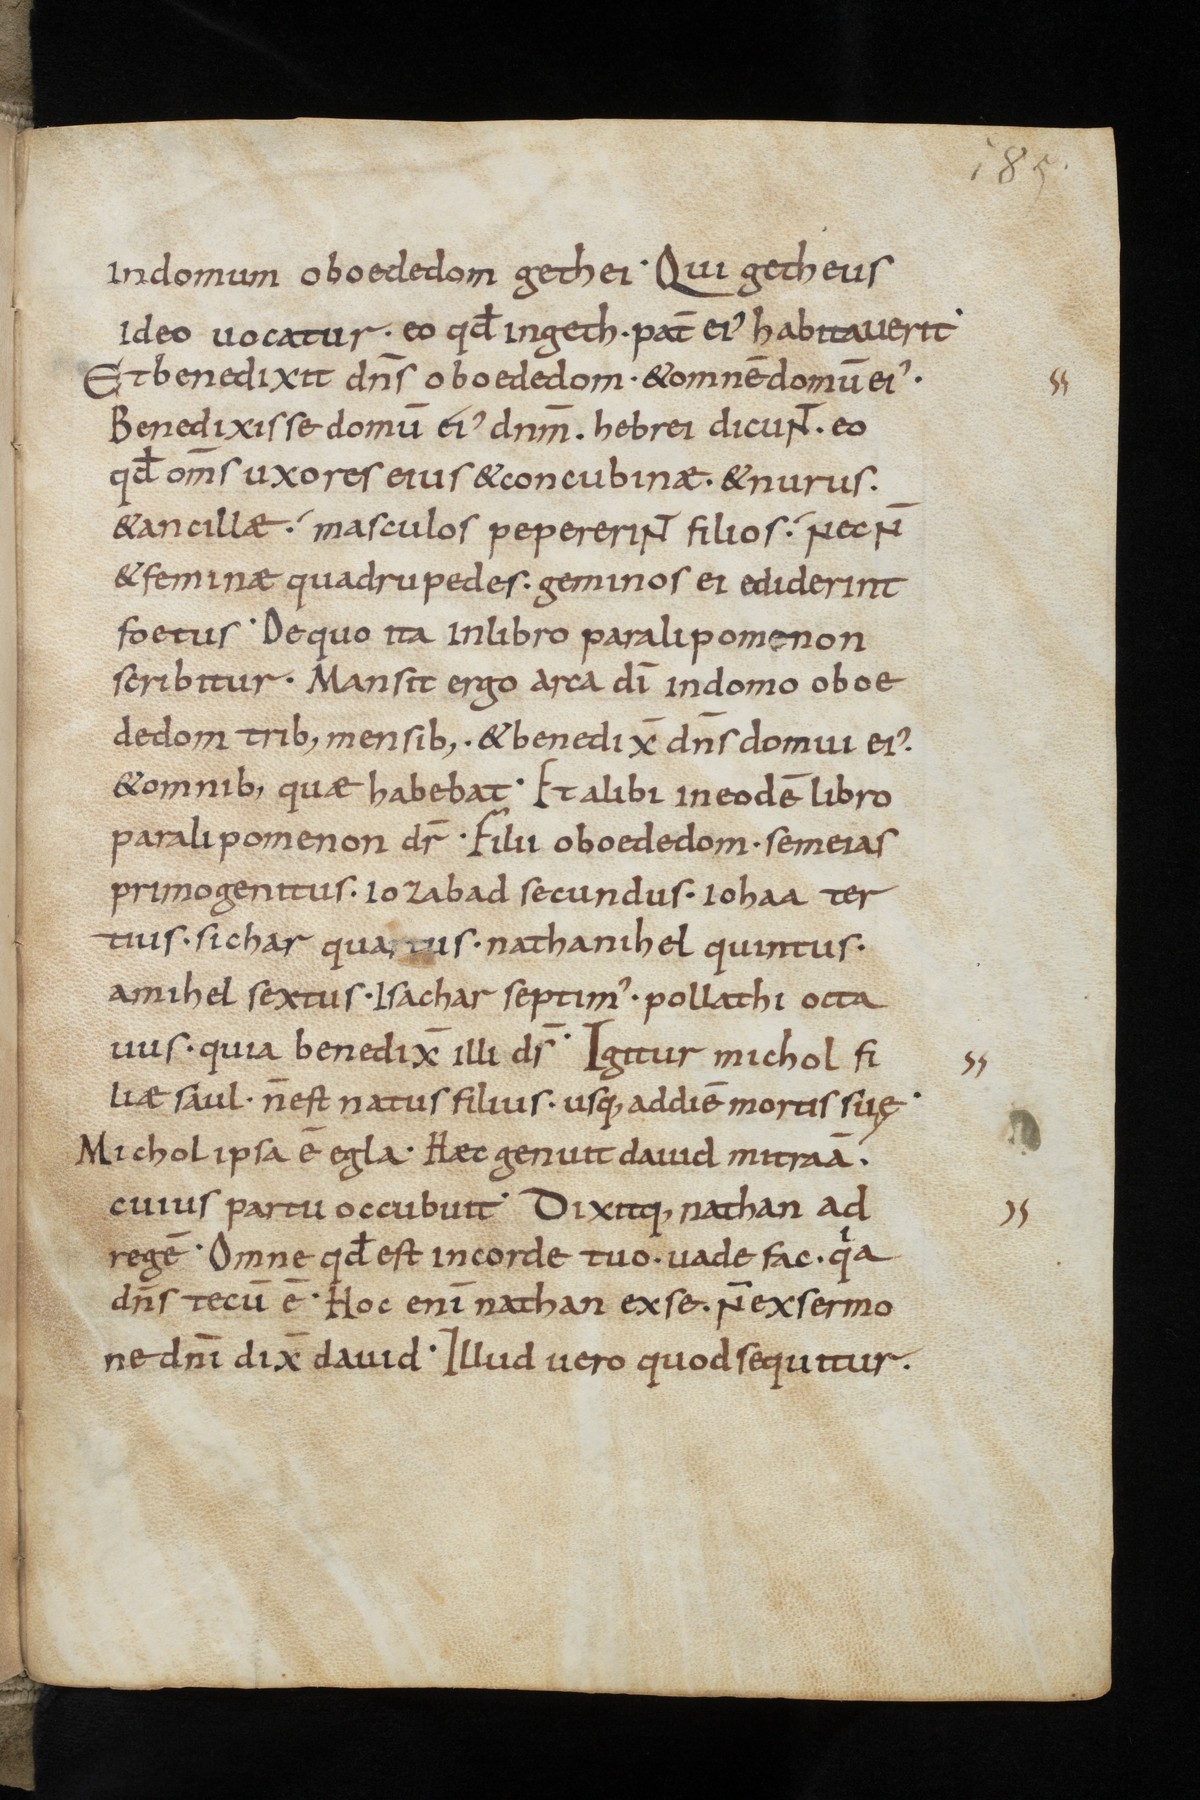 185.
indomum oboededom gethei· Qui getheus
ideo uocatur· eo qđ ingeth· pat̄ ei᾽ habitauerit·
Et benedixit dn̄s oboededom· &omnē domū ei᾽·
Benedixisse domū ei᾽ dnm̄· hebrei dicuNT̄· eo
qđ om̄s uxores eius &concubinæ· &nurus·
&ancillæ· masculos pepereriNT̄ filios· Nec N̄
&feminæ quadrupedes· geminos ei ediderint
foetus· De quo ita inlibro paralipomenon
scribitur· Mansit ergo arca dī indomo oboe
dedom trib, mensib,· &benedix̄ dn̄s domui ei᾽·
&omnib, quæ habebat· Et alibi ineodē libro
paralipomenon dr̄· Filii oboededom· semeias
primogenitus· iozabad secundus· iohaa ter
tius· sichar quartus· nathanihel quintus·
amihel sextus· Isachar septim᾽· pollathi octa
uus· quia benedix̄ illi ds̄· Igitur michol fi
liæ saul· n̄ est natus filius· usq, addiē mortis suę·
Michol ipsa ē egla· Hæc genuit dauid mitraā·
cuius partu occubuit· Dixitq, nathan ad
regē· Omne qđ est incorde tuo· uade fac· qⁱa
dn̄s tecū ē· Hoc enī nathan exse· N̄ exsermo
ne dnī dix̄ dauid· Illud uero quod sequitur·